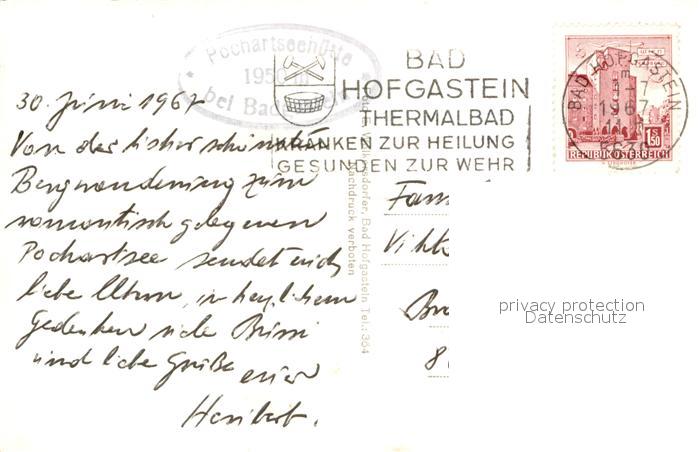 Pochartseehütte
195
bei Bad
BAD
HOFGASTEIN
THERMALBAD
KRANKEN ZUR HEILUNG
GESUNDEN ZUR WEHR
BAD HOFGASTEIN
1967
1.50
REPUBLIK ÖSTERREICH
30. Juni 1967
Von der bisher schönsten
Bergwanderung zum
romantisch gelegenen
Pochartsee sendet euch
liebe Eltern, in herzlichem
Gedenken viele Bussi
und liebe Grüße
euer
Heribert.
dorfer, Bad Hofgastein Tel.: 364
Nachdruck verboten
Fam
Vikt
Br
8
privacy protection
Datenschutz